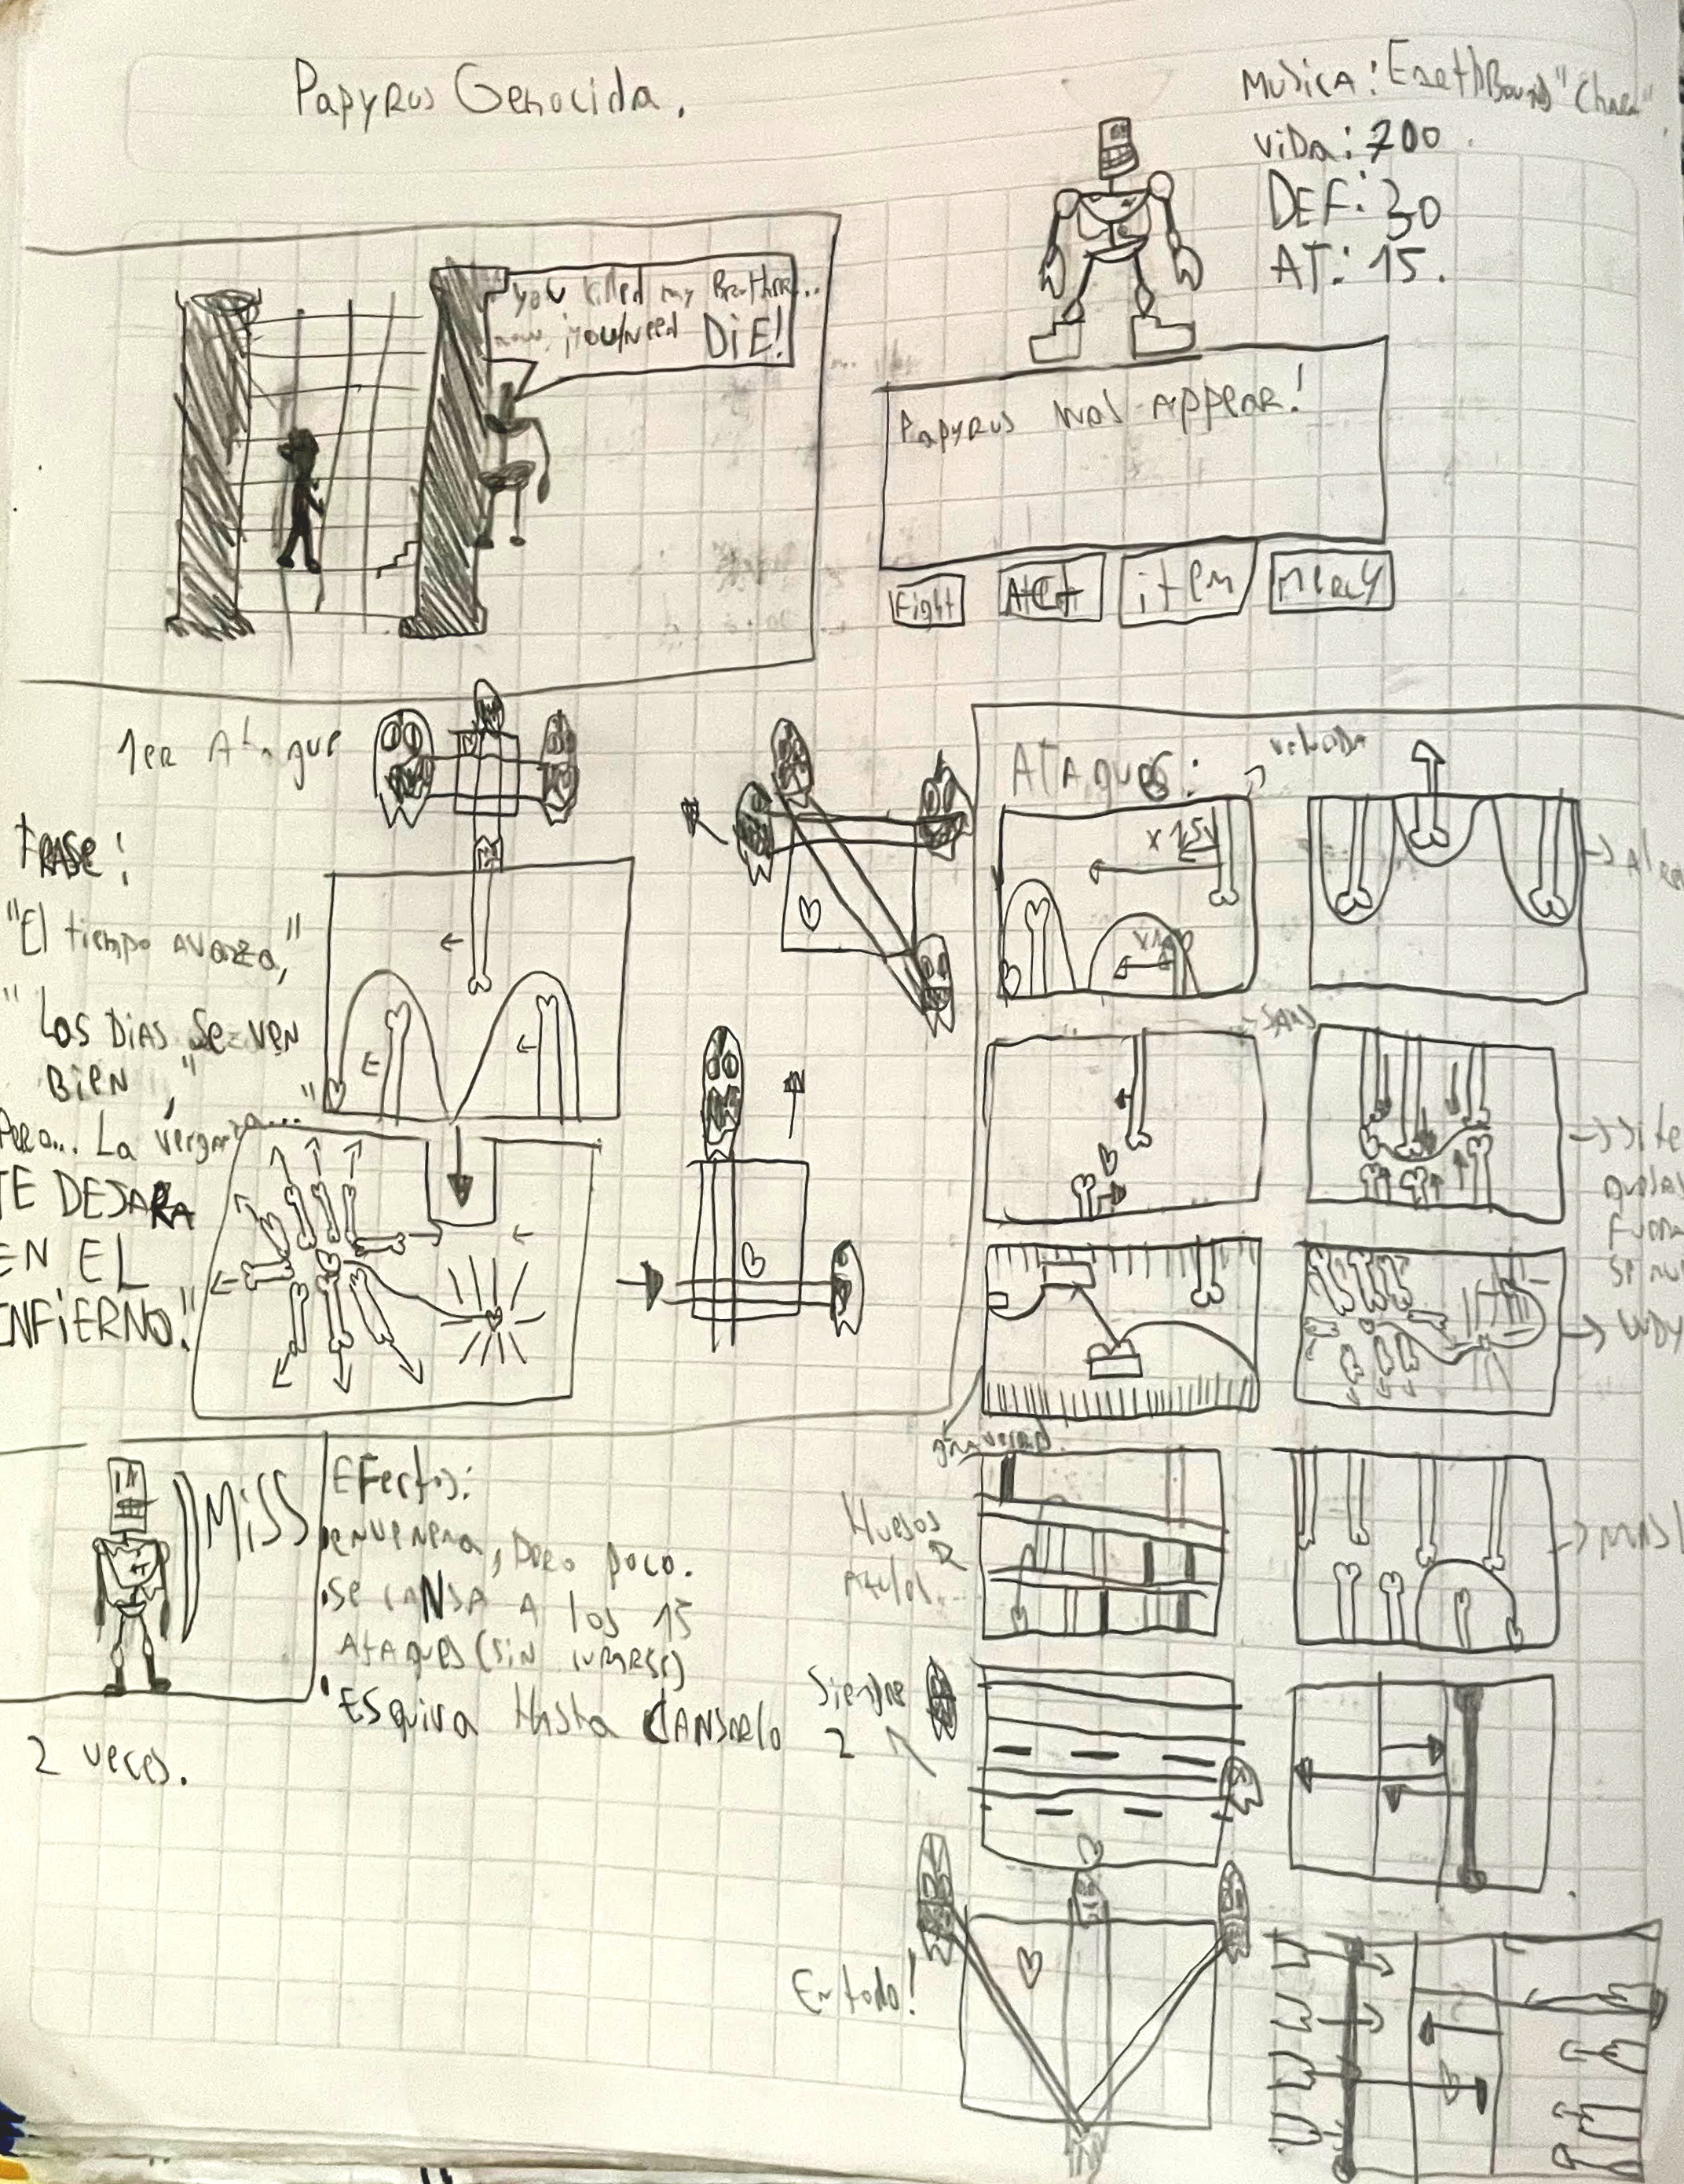 Papyrus Genocida.
Musica: EarthBound "Chara"
Vida: 700
DEF: 30
AT: 15.
you killed my Brother...
now, you need DIE!
Papyrus was appear!
Fight
item
Mercy
1er Ataque
Frase:
"El tiempo avanza,"
"Los Dias se ven
Bien,"
"Pero... La verganza...
TE DEJARA
EN EL
INFIERNO."
ATAQUES:
x 1.5v
SANS
→ site
quedas
→ WDY
gravedad.
Huesos
Azules.
Siempre
2
En todo!
MISS
Efectos:
envenena, pero poco.
se cansa a los 15
Ataques (sin curarse)
Esquiva Hasta CANSARlo
2 veces.